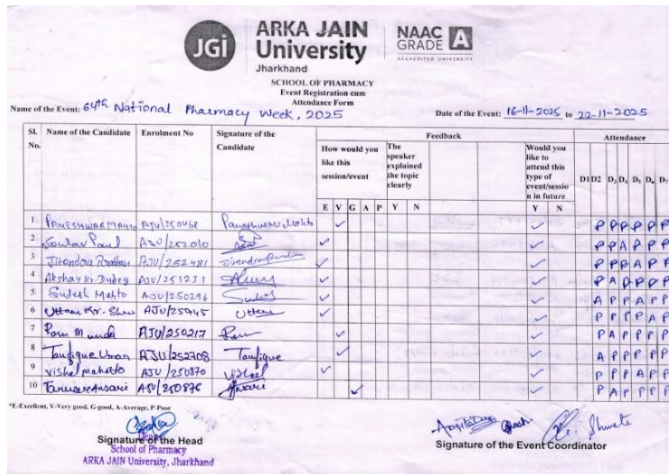 JGi
ARKA JAIN
University
Jharkhand
NAAC
GRADE A
ACCREDITED UNIVERSITY
SCHOOL OF PHARMACY
Event Registration cum
Attendance Form
Name of the Event: 64th National Pharmacy Week, 2025
Date of the Event: 16-11-2025 to 22-11-2025
Sl. No. Name of the Candidate Enrolment No Signature of the Candidate Feedback Attendance
How would you like this session/event The speaker explained the topic clearly Would you like to attend this type of event/session in future D1 D2 D3 D4 D5 D6 D7
E V G A P Y N Y N
1 AJU/250468 ✓ ✓ P P P P P P
2 Sourav Paul AJU/252010 ✓ ✓ P P A P P P
3 Jitendra Pradhan AJU/252481 ✓ ✓ P P P A P P
4 Akshay Kr. Dubey AJU/251231 ✓ ✓ P A P P P P
5 Sudesh Mahto AJU/250296 ✓ ✓ A P P A P P
6 Uttam Kr. Shaw AJU/250945 Uttam ✓ ✓ P P P P A P
7 Ram Munda AJU/250217 Ram ✓ ✓ P A P P P P
8 AJU/252708 Taufique ✓ ✓ A P P P P P
9 Vishal Mahato AJU/250870 Vishal ✓ ✓ P P P A P P
10 AJU/250876 Ansari ✓ P A P P P P
*E-Excellent, V-Very good, G-good, A-Average, P-Poor
Signature of the Head
School of Pharmacy
ARKA JAIN University, Jharkhand
Shweta
Signature of the Event Coordinator